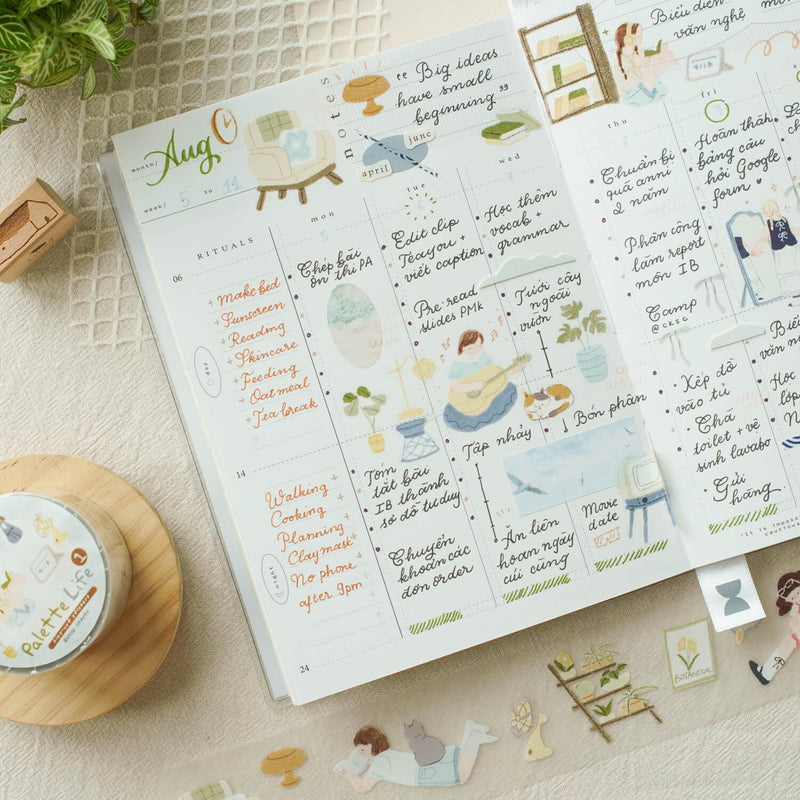 month/ Aug
week/ 5 to 11
notes
" Big ideas
have small
beginning "
april
june
RITUALS
06
+ Make bed
+ Sunscreen
+ Reading
+ Skincare
+ Feeding
+ Oatmeal
+ Tea break
day
14
Walking +
Cooking
Planning
Clay mask
No phone
after 9pm
night
24
mon
5
Chép bài
ôn thi PA
Tóm
tắt bài
IB thành
sơ đồ tư duy
Chuyển
khoản các
đơn order
tue
6
Edit clip
Teayou +
viết caption
Pre-read
slides PMk
Tập nhảy
Ăn liên
hoan ngày
cuối cùng
wed
Học thêm
vocab +
grammar
Tưới cây
ngoài
vườn
Bón phân
Movie
date
Biểu diễn
văn nghệ
thu
8
Chuẩn bị
quà anni
2 năm
Phân công
làm report
môn IB
Camp
@cksc
Xếp đồ
vào tủ
Chà
toilet + vệ
sinh lavabo
Gửi
hàng
fri
Hoàn thành
bảng câu
hỏi Google
form
Palette Life
1
BOTANICAL